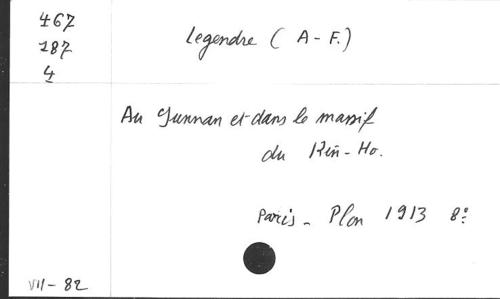 467
187
4
Legendre (A-F.)
Au Yunnan et dans le massif
du Kin-Ho.
Paris - Plon 1913 8º
VII-82